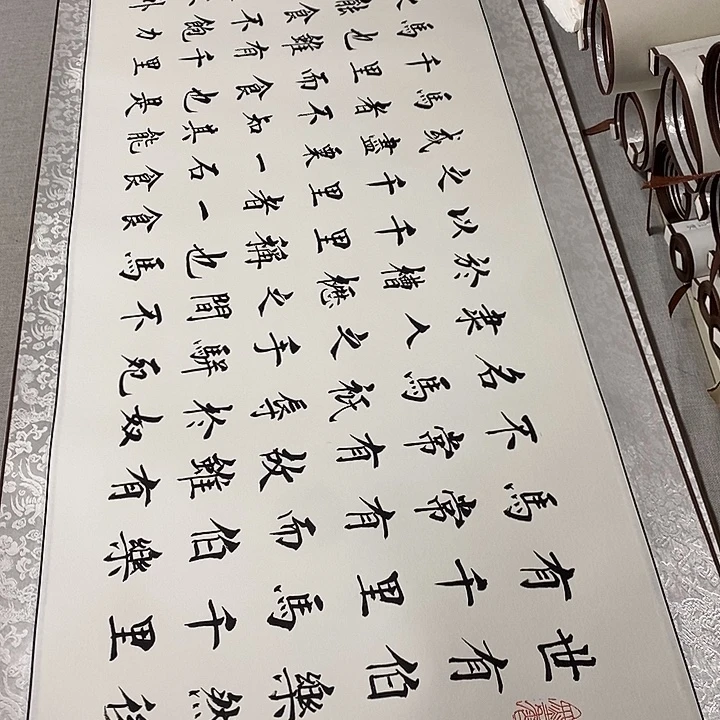 世有伯樂然後
有千里馬千里
馬常有而伯樂
不常有故雖有
名馬祇辱於奴
隸人之手駢死
於槽櫪之間不
以千里稱也馬
之千里者一食
或盡粟一石食
馬者不知其能
千里而食也是
馬也雖有千里
之能食不飽力
外